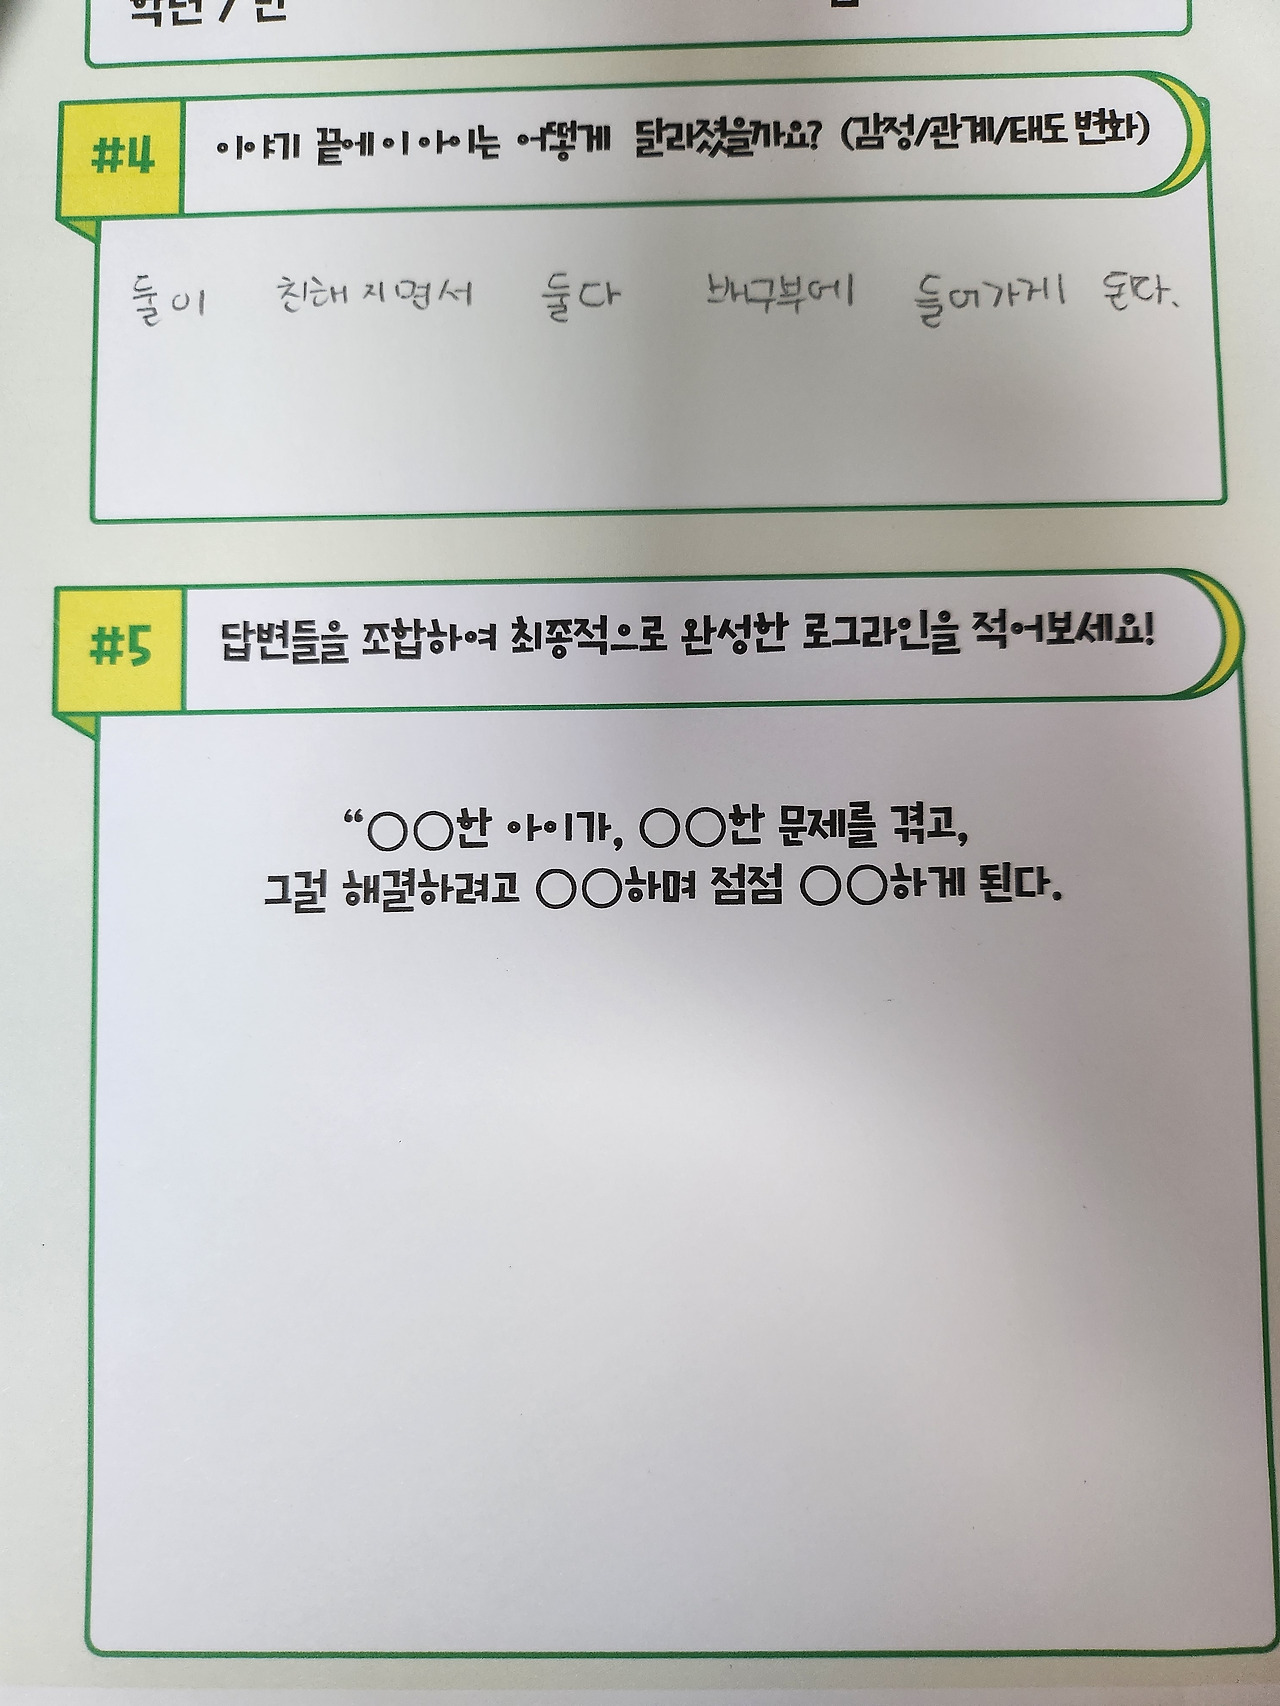 학년 / 반
#4 이야기 끝에 이 아이는 어떻게 달라졌을까요? (감정/관계/태도 변화)
둘이 친해지면서 둘다 배구부에 들어가게 된다.
#5 답변들을 조합하여 최종적으로 완성한 로그라인을 적어보세요!
“○○한 아이가, ○○한 문제를 겪고,
그걸 해결하려고 ○○하며 점점 ○○하게 된다.